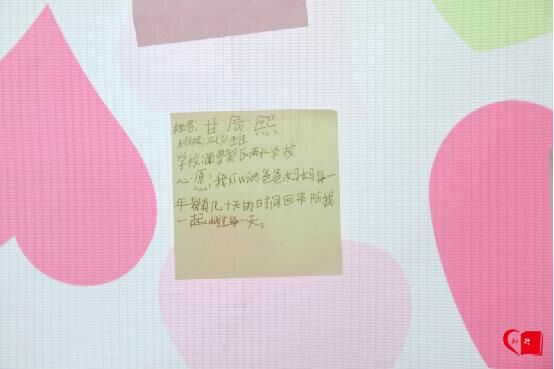 姓名:甘辰熙
班级:三(1)班
学校
学校
心愿:我希望爸爸妈妈每一
年都有几十天的时间回来陪我
一起度过每一天。
知行